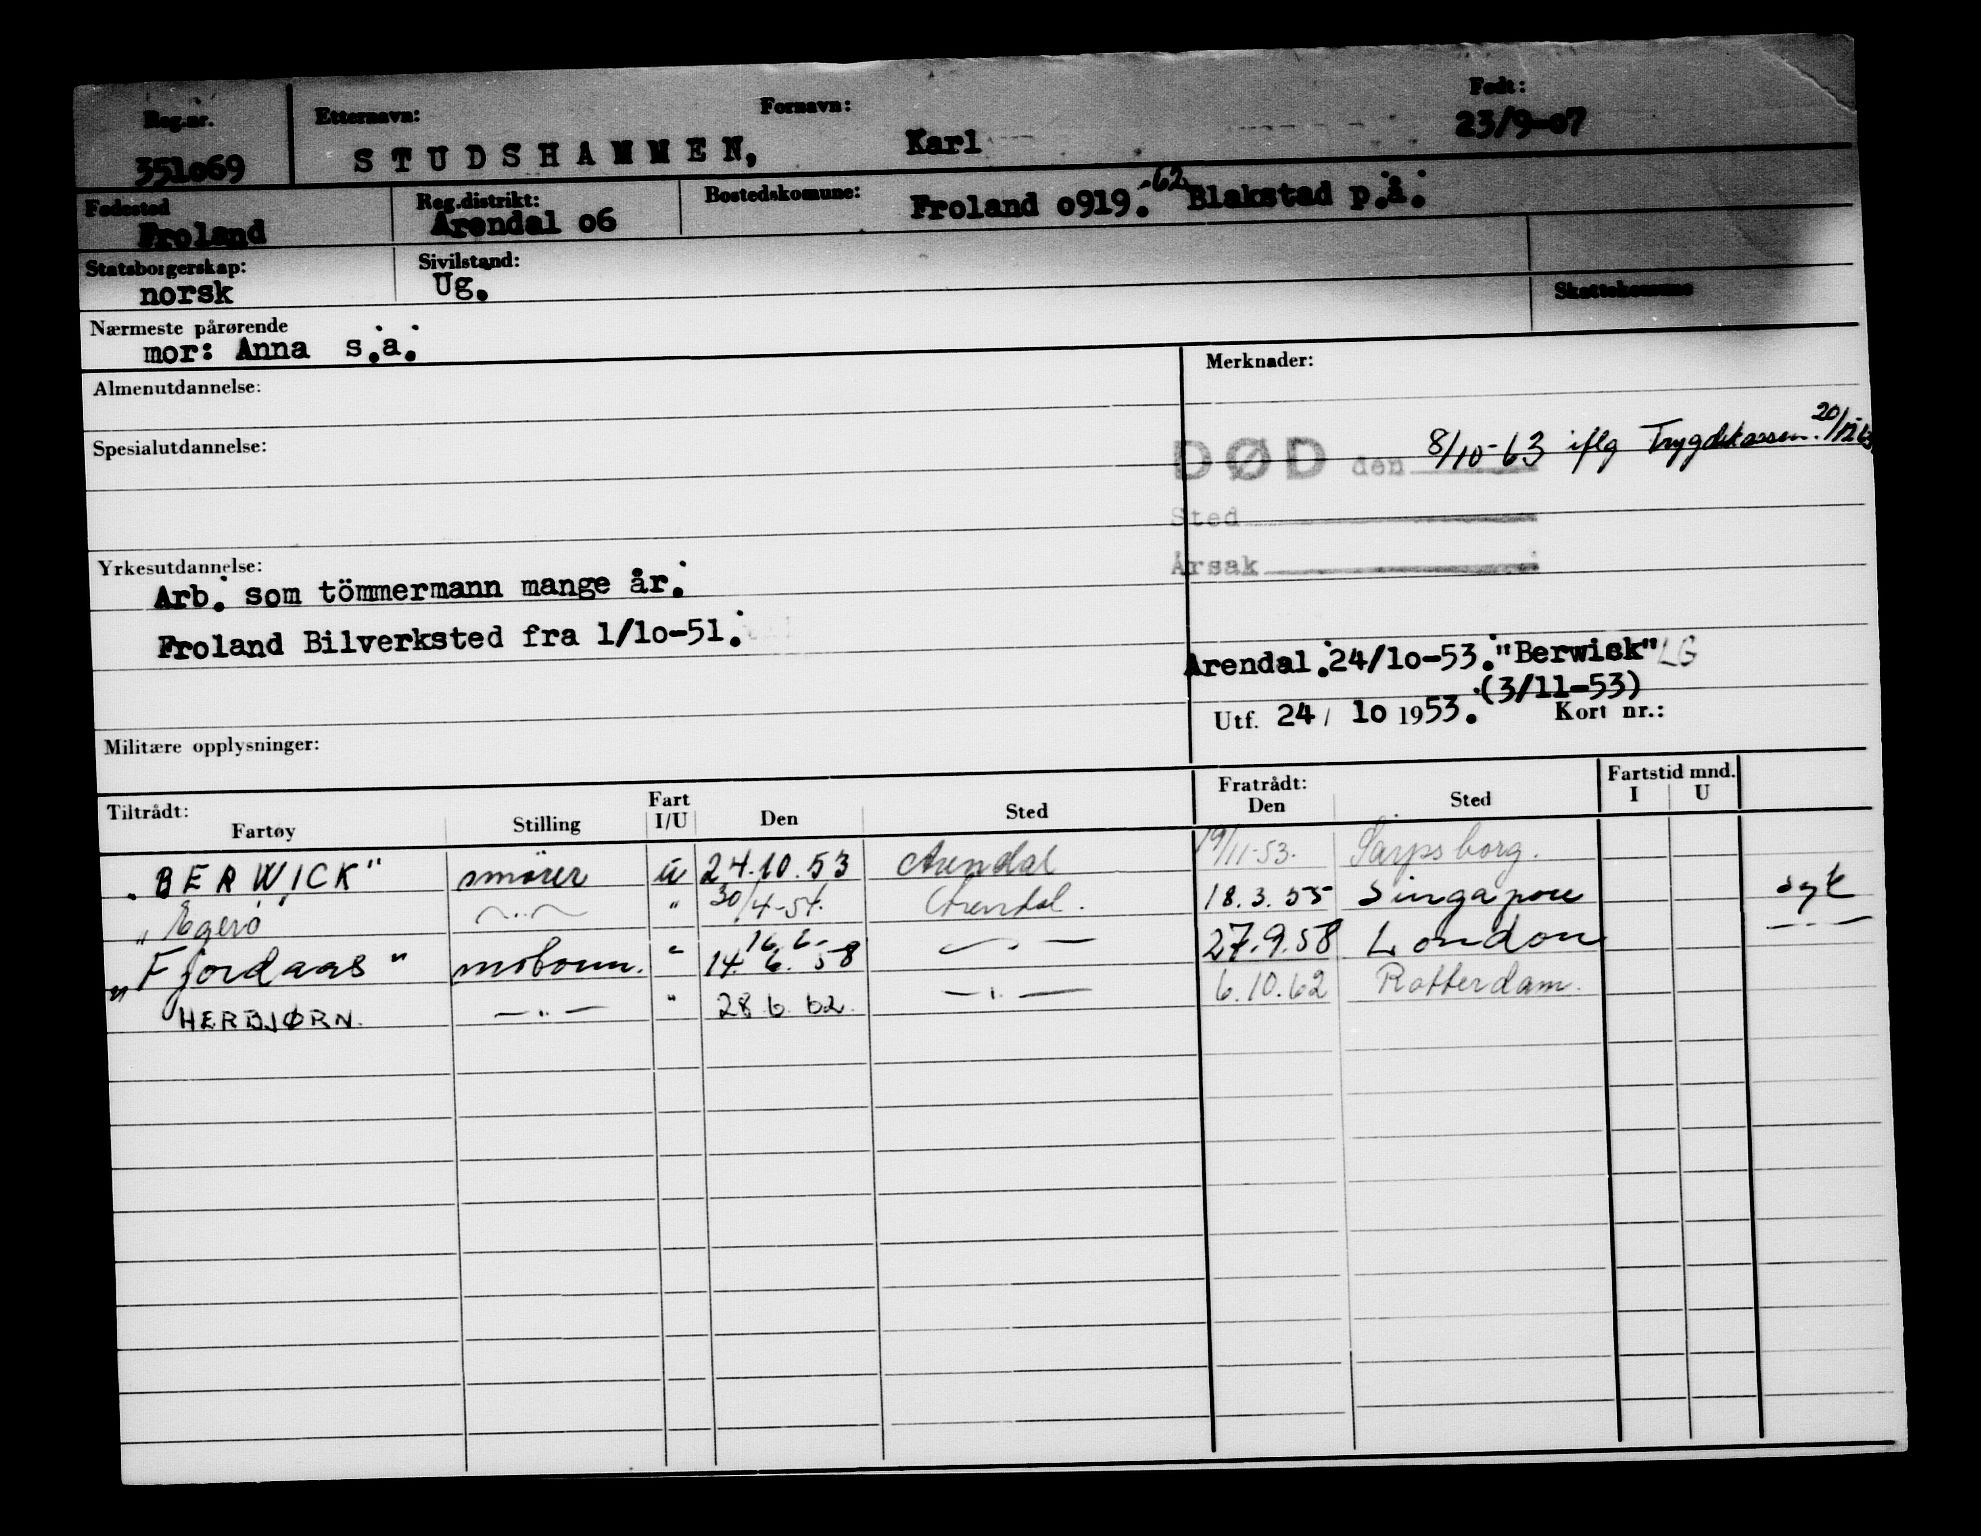 Reg.nr. Etternavn: Fornavn: Født:
351o69 STUDSHAMMEN, Karl 23/9-o7
Fødested Reg.distrikt: Bostedskomune:
Froland Arendal o6 Froland o919. -62 Blakstad p.å.
Statsborgerskap: Sivilstand:
norsk Ug.
Skattekomune
Nærmeste pårørende
mor: Anna s.a.
Almenutdannelse: Merknader:
Spesialutdannelse:
DØD den 8/10-63 iflg Trygdekassen. 20/12 63
Sted
Årsak
Yrkesutdannelse:
Arb. som tömmermann mange år.
Froland Bilverksted fra 1/1o-51.
Arendal.24/1o-53."Berwick" LG
(3/11-53)
Utf. 24 / 1o 1953. Kort nr.:
Militære opplysninger:
Tiltrådt: Fratrådt: Fartstid mnd.
Fartøy Stilling Fart I/U Den Sted Den Sted I U
"BERWICK" smører u 24.10.53 Arendal 19/11-53. Sarpsborg.
"Egerö" —"— " 30/4-54. Arendal. 18.3.55 Singapore syk
16.6.
"Fjordaas" motorm. " 14.6.58 —"— 27.9.58 London —"—
HERBJØRN. —"— " 28.6.62. —"— 6.10.62 Rotterdam.